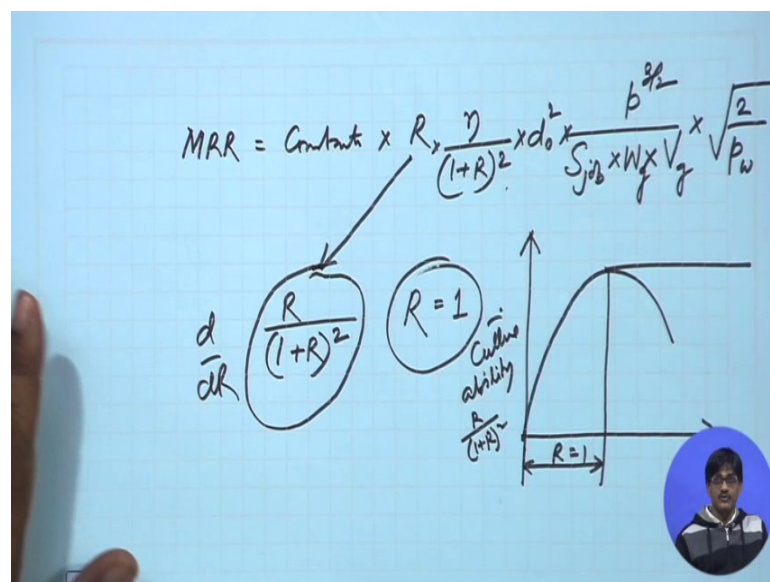 MRR = Constants × R × η/(1+R)² × d₀² × p^3/2/(S_job × W_g × V_g) × √(2/ρ_w)
d/dR R/(1+R)² R = 1
ability
R/(1+R)²
R = 1